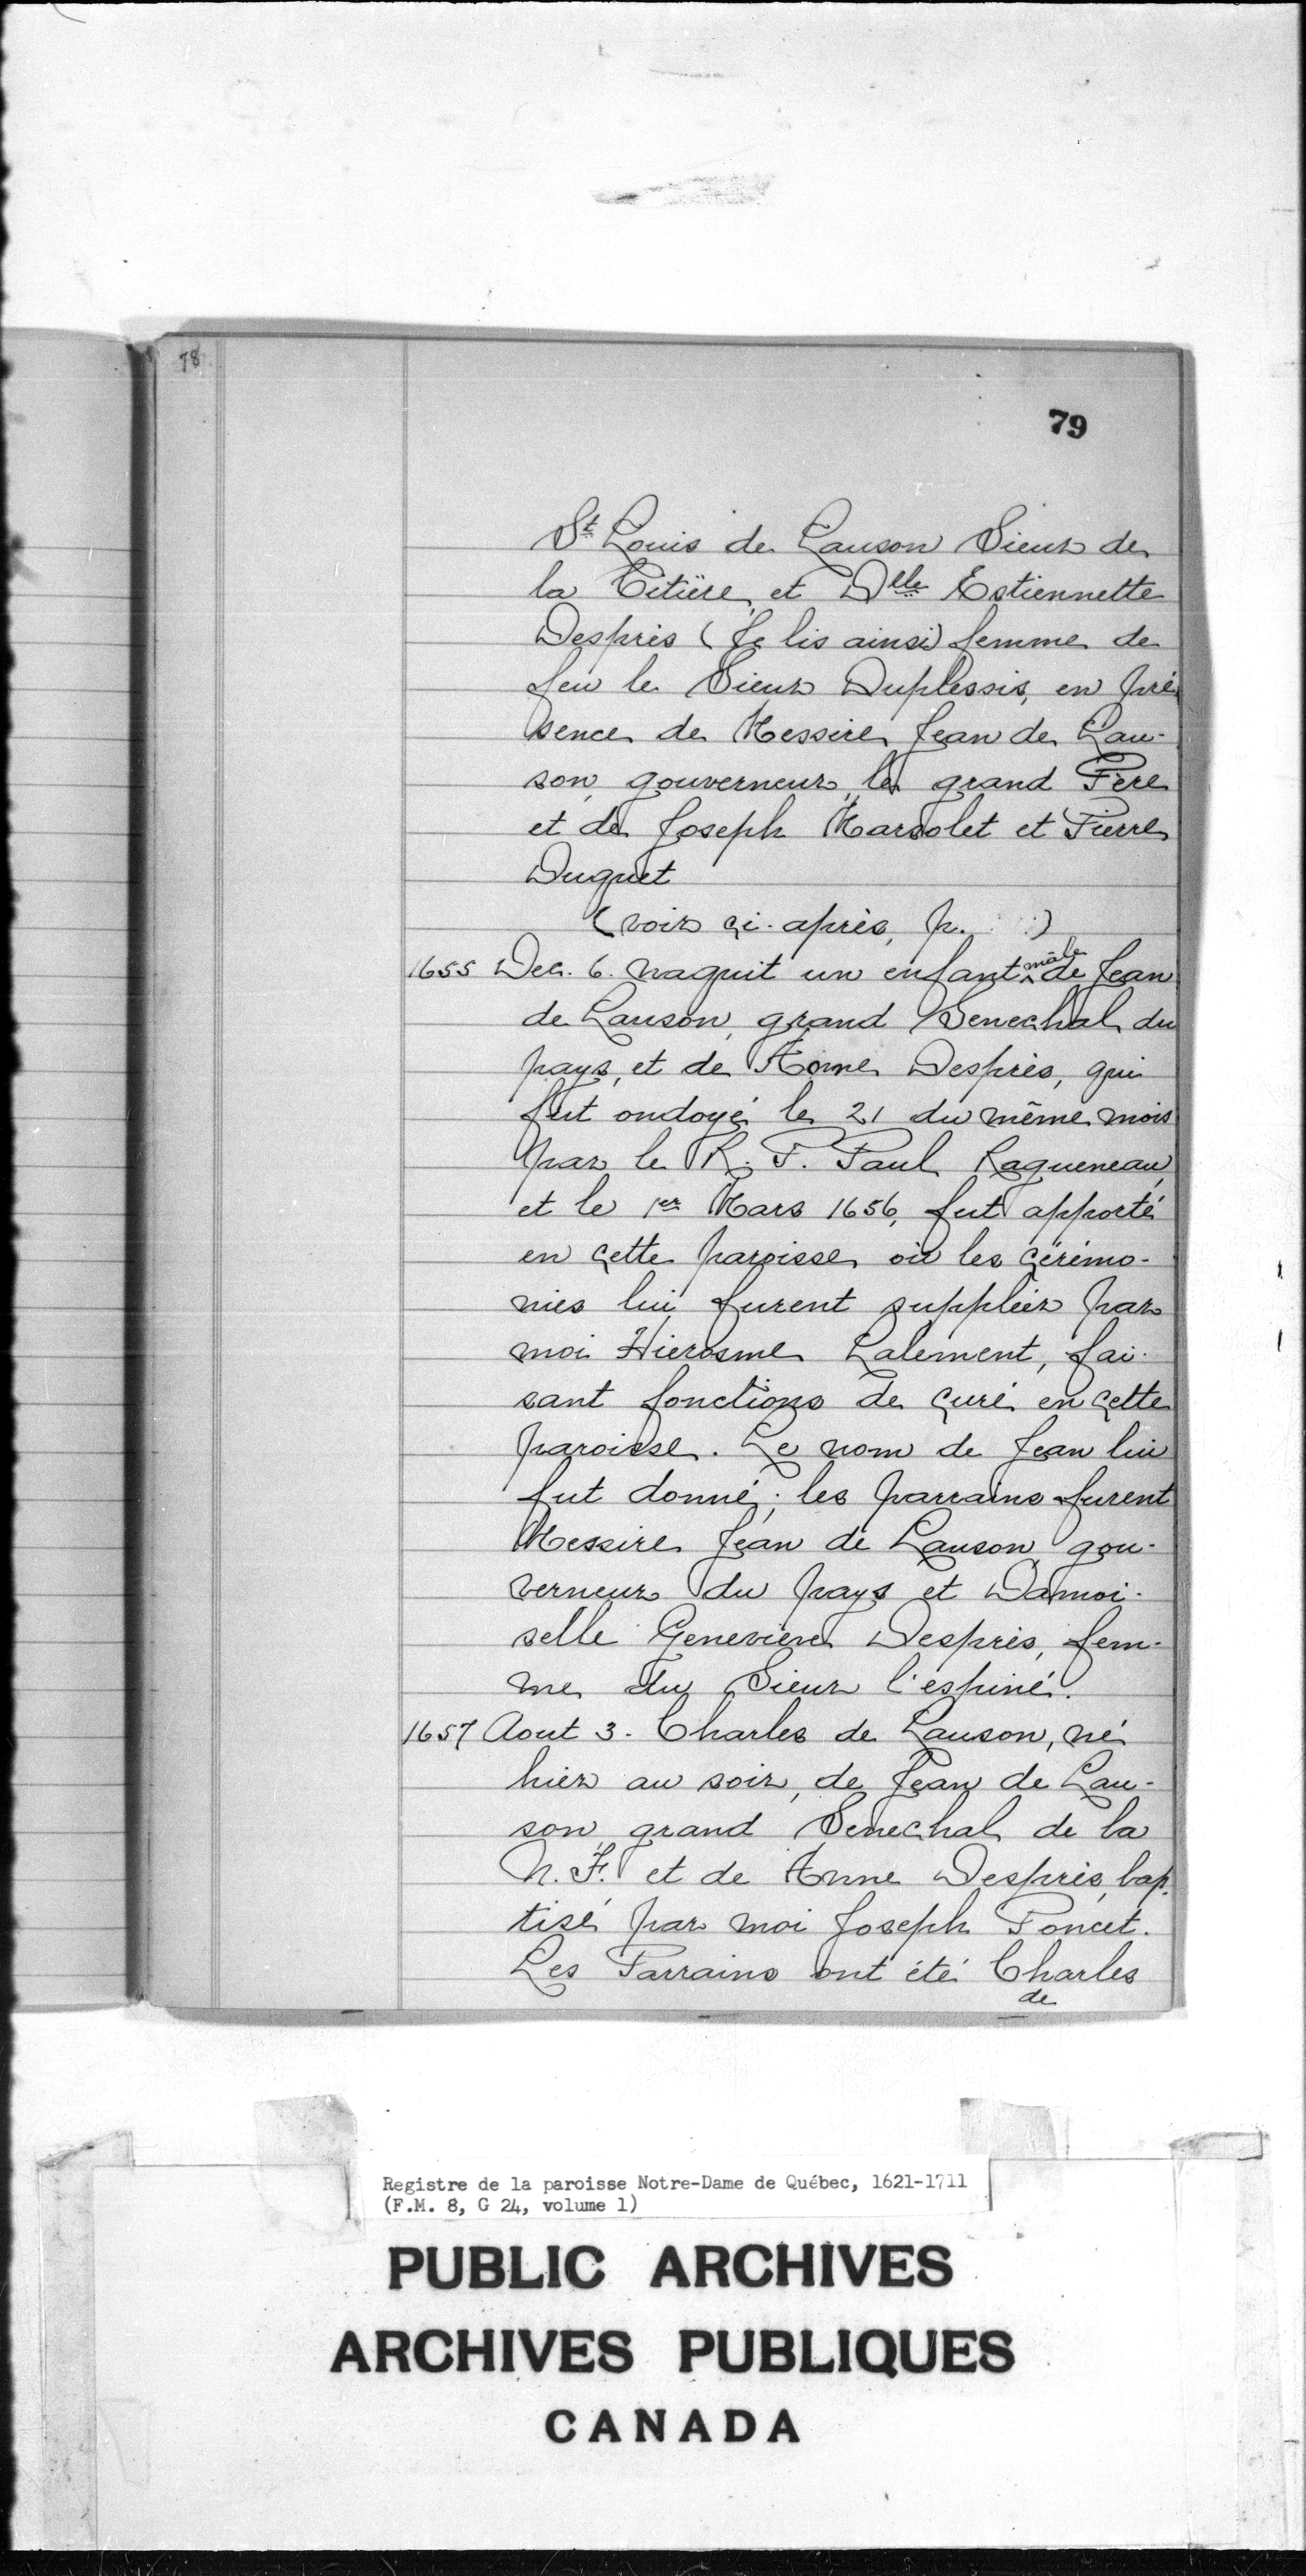 78
79
St Louis de Lauson Sieur de
la Citière, et Dlle Estiennette
Després (Je lis ainsi) femme de
feu le Sieur Duplessis, en pré
sence de Messire Jean de Lau-
son, gouverneur, le grand Père
et de Joseph Marsolet et Pierre
Duquet
(voir ci-après, p. )
1655 Dec. 6. naquit un enfant mâle de Jean
de Lauson, grand Senechal du
pays, et de Anne Després, qui
fut ondoyé le 21 du même mois
par le R. P. Paul Ragueneau,
et le 1er Mars 1656, fut apporté
en cette paroisse où les cérémo-
nies lui furent suppléez par
moi Hierosme Lalement, fai-
sant fonctions de curé en cette
paroisse. Le nom de Jean lui
fut donné; les parrains furent
Messire Jean de Lauson gou-
verneur du pays et Damoi-
selle Genevieve Després, fem-
me du Sieur l'espiné.
1657 Aout 3. Charles de Lauson, né
hier au soir, de Jean de Lau-
son, grand Senechal de la
N. F. et de Anne Després, bap-
tisé par moi Joseph Poncet.
Les Parrains ont été Charles
de
Registre de la paroisse Notre-Dame de Québec, 1621-1711
(F.M. 8, G 24, volume 1)
PUBLIC ARCHIVES
ARCHIVES PUBLIQUES
CANADA